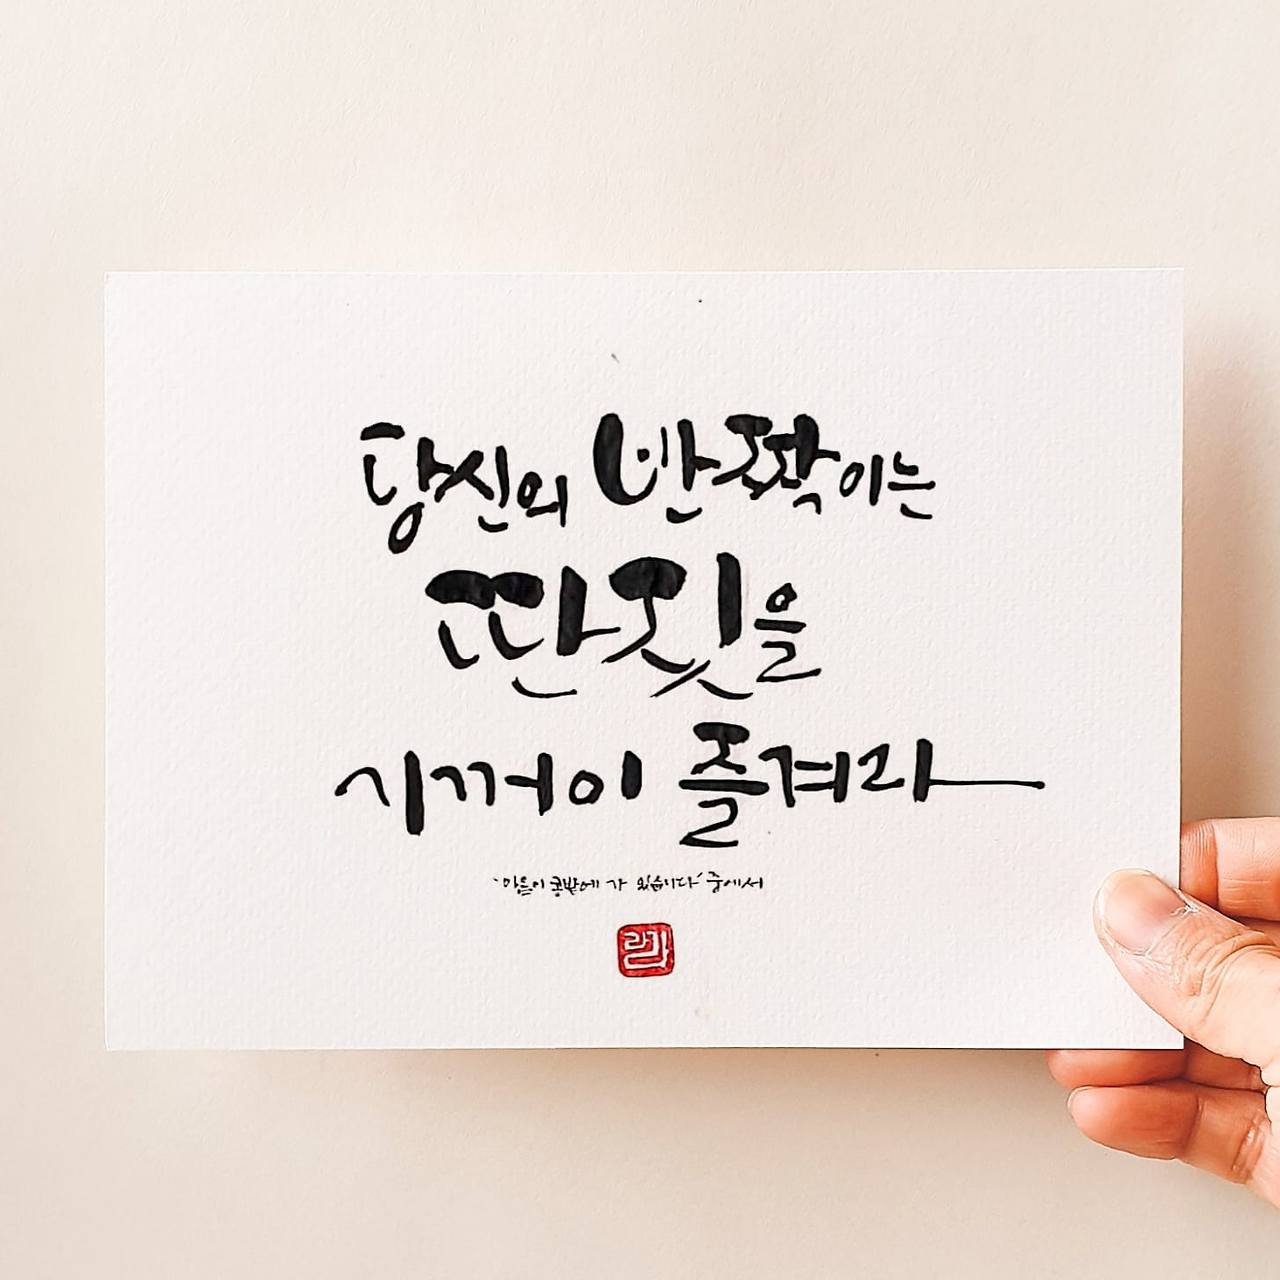 당신의 반짝이는
딴짓을
기꺼이 즐겨라
'마음이 콩밭에 가 있습니다' 중에서